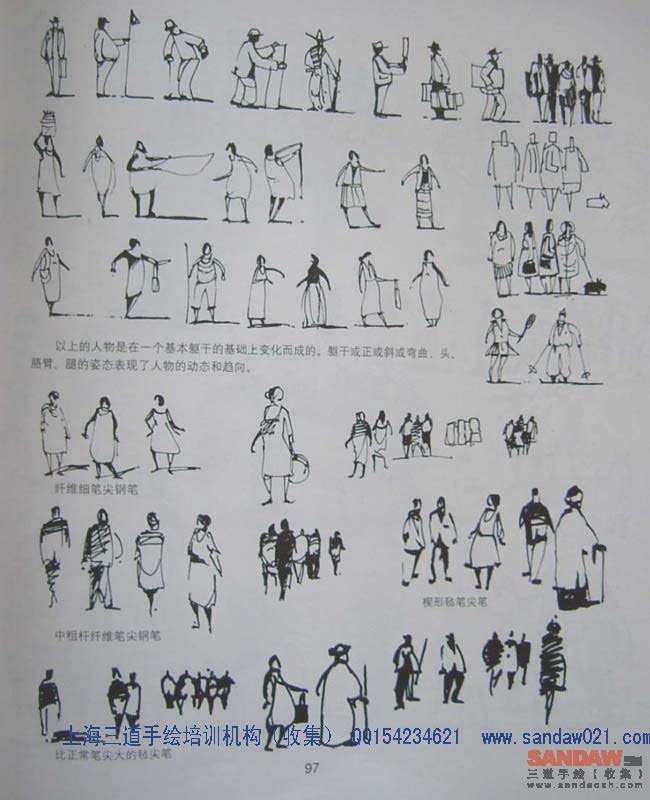 以上的人物是在一个基本躯干的基础上变化而成的。躯干或正或斜或弯曲、头、
胳臂、腿的姿态表现了人物的动态和趋向。
纤维细笔尖钢笔
楔形毡笔尖笔
中粗杆纤维笔尖钢笔
上海三道手绘培训机构(收集) QQ154234621 www.sandaw021.com
比正常笔尖大的毡尖笔
97
SANDAW.com
三道手绘【收集】
www.sandacsh.com